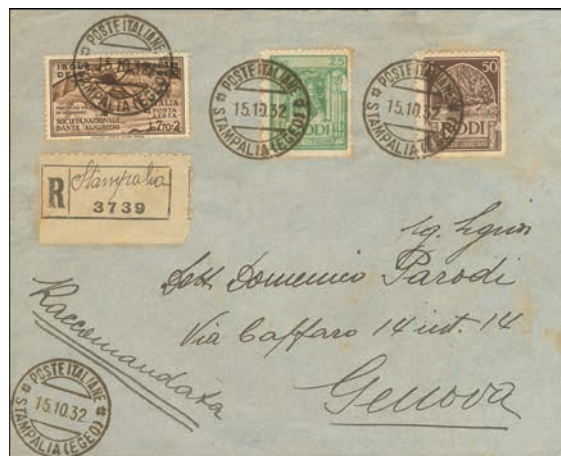 POSTE ITALIANE
15.10.32
STAMPALIA (EGEO)
ISOLE
POSTA
AEREA
SOCIETÀ NAZIONALE
DANTE ALIGHIERI
L.7.70+2
POSTE ITALIANE
15.10.32
STAMPALIA (EGEO)
25
RODI
POSTE ITALIANE
15.10.32
STAMPALIA (EGEO)
50
RODI
R Stampalia
3739
Dott. Domenico Parodi
Via Caffaro 14 int. 14
Genova
Raccomandata
POSTE ITALIANE
15.10.32
STAMPALIA (EGEO)